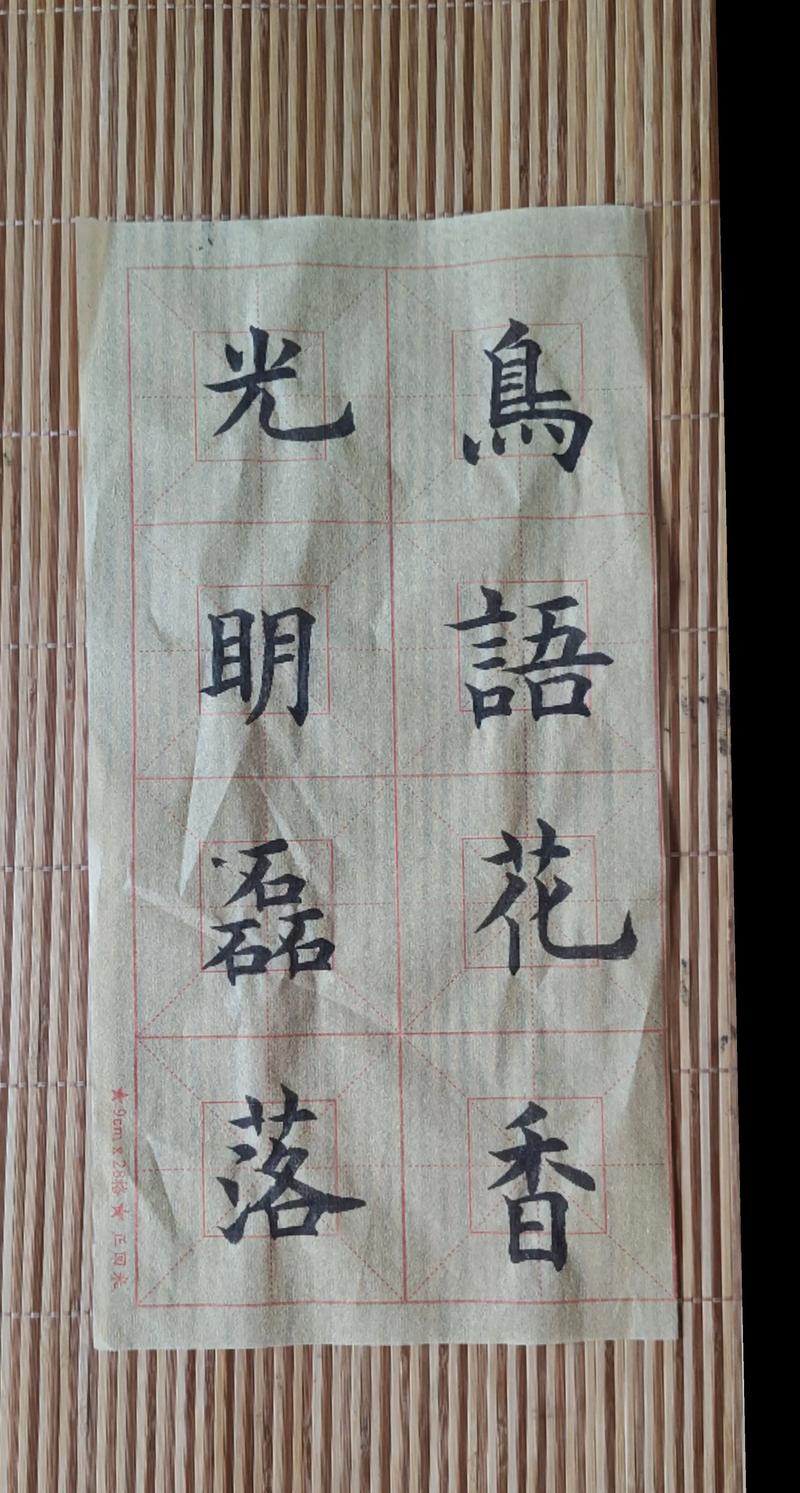 鳥語花香
光明磊落
★9cm x 28格★